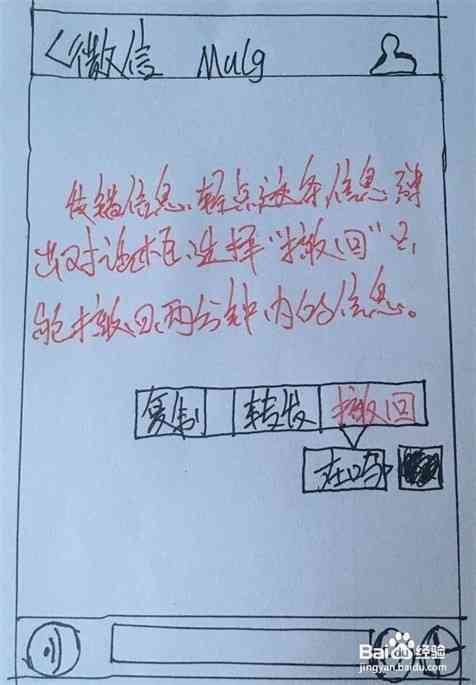 <微信 Mulg
发错信息、轻点这条信息弹
出对话框、选择“撤回”只
能撤回两分钟内的信息。
复制 转发 撤回
在吗
Baidu 经验
jingyan.baidu.com